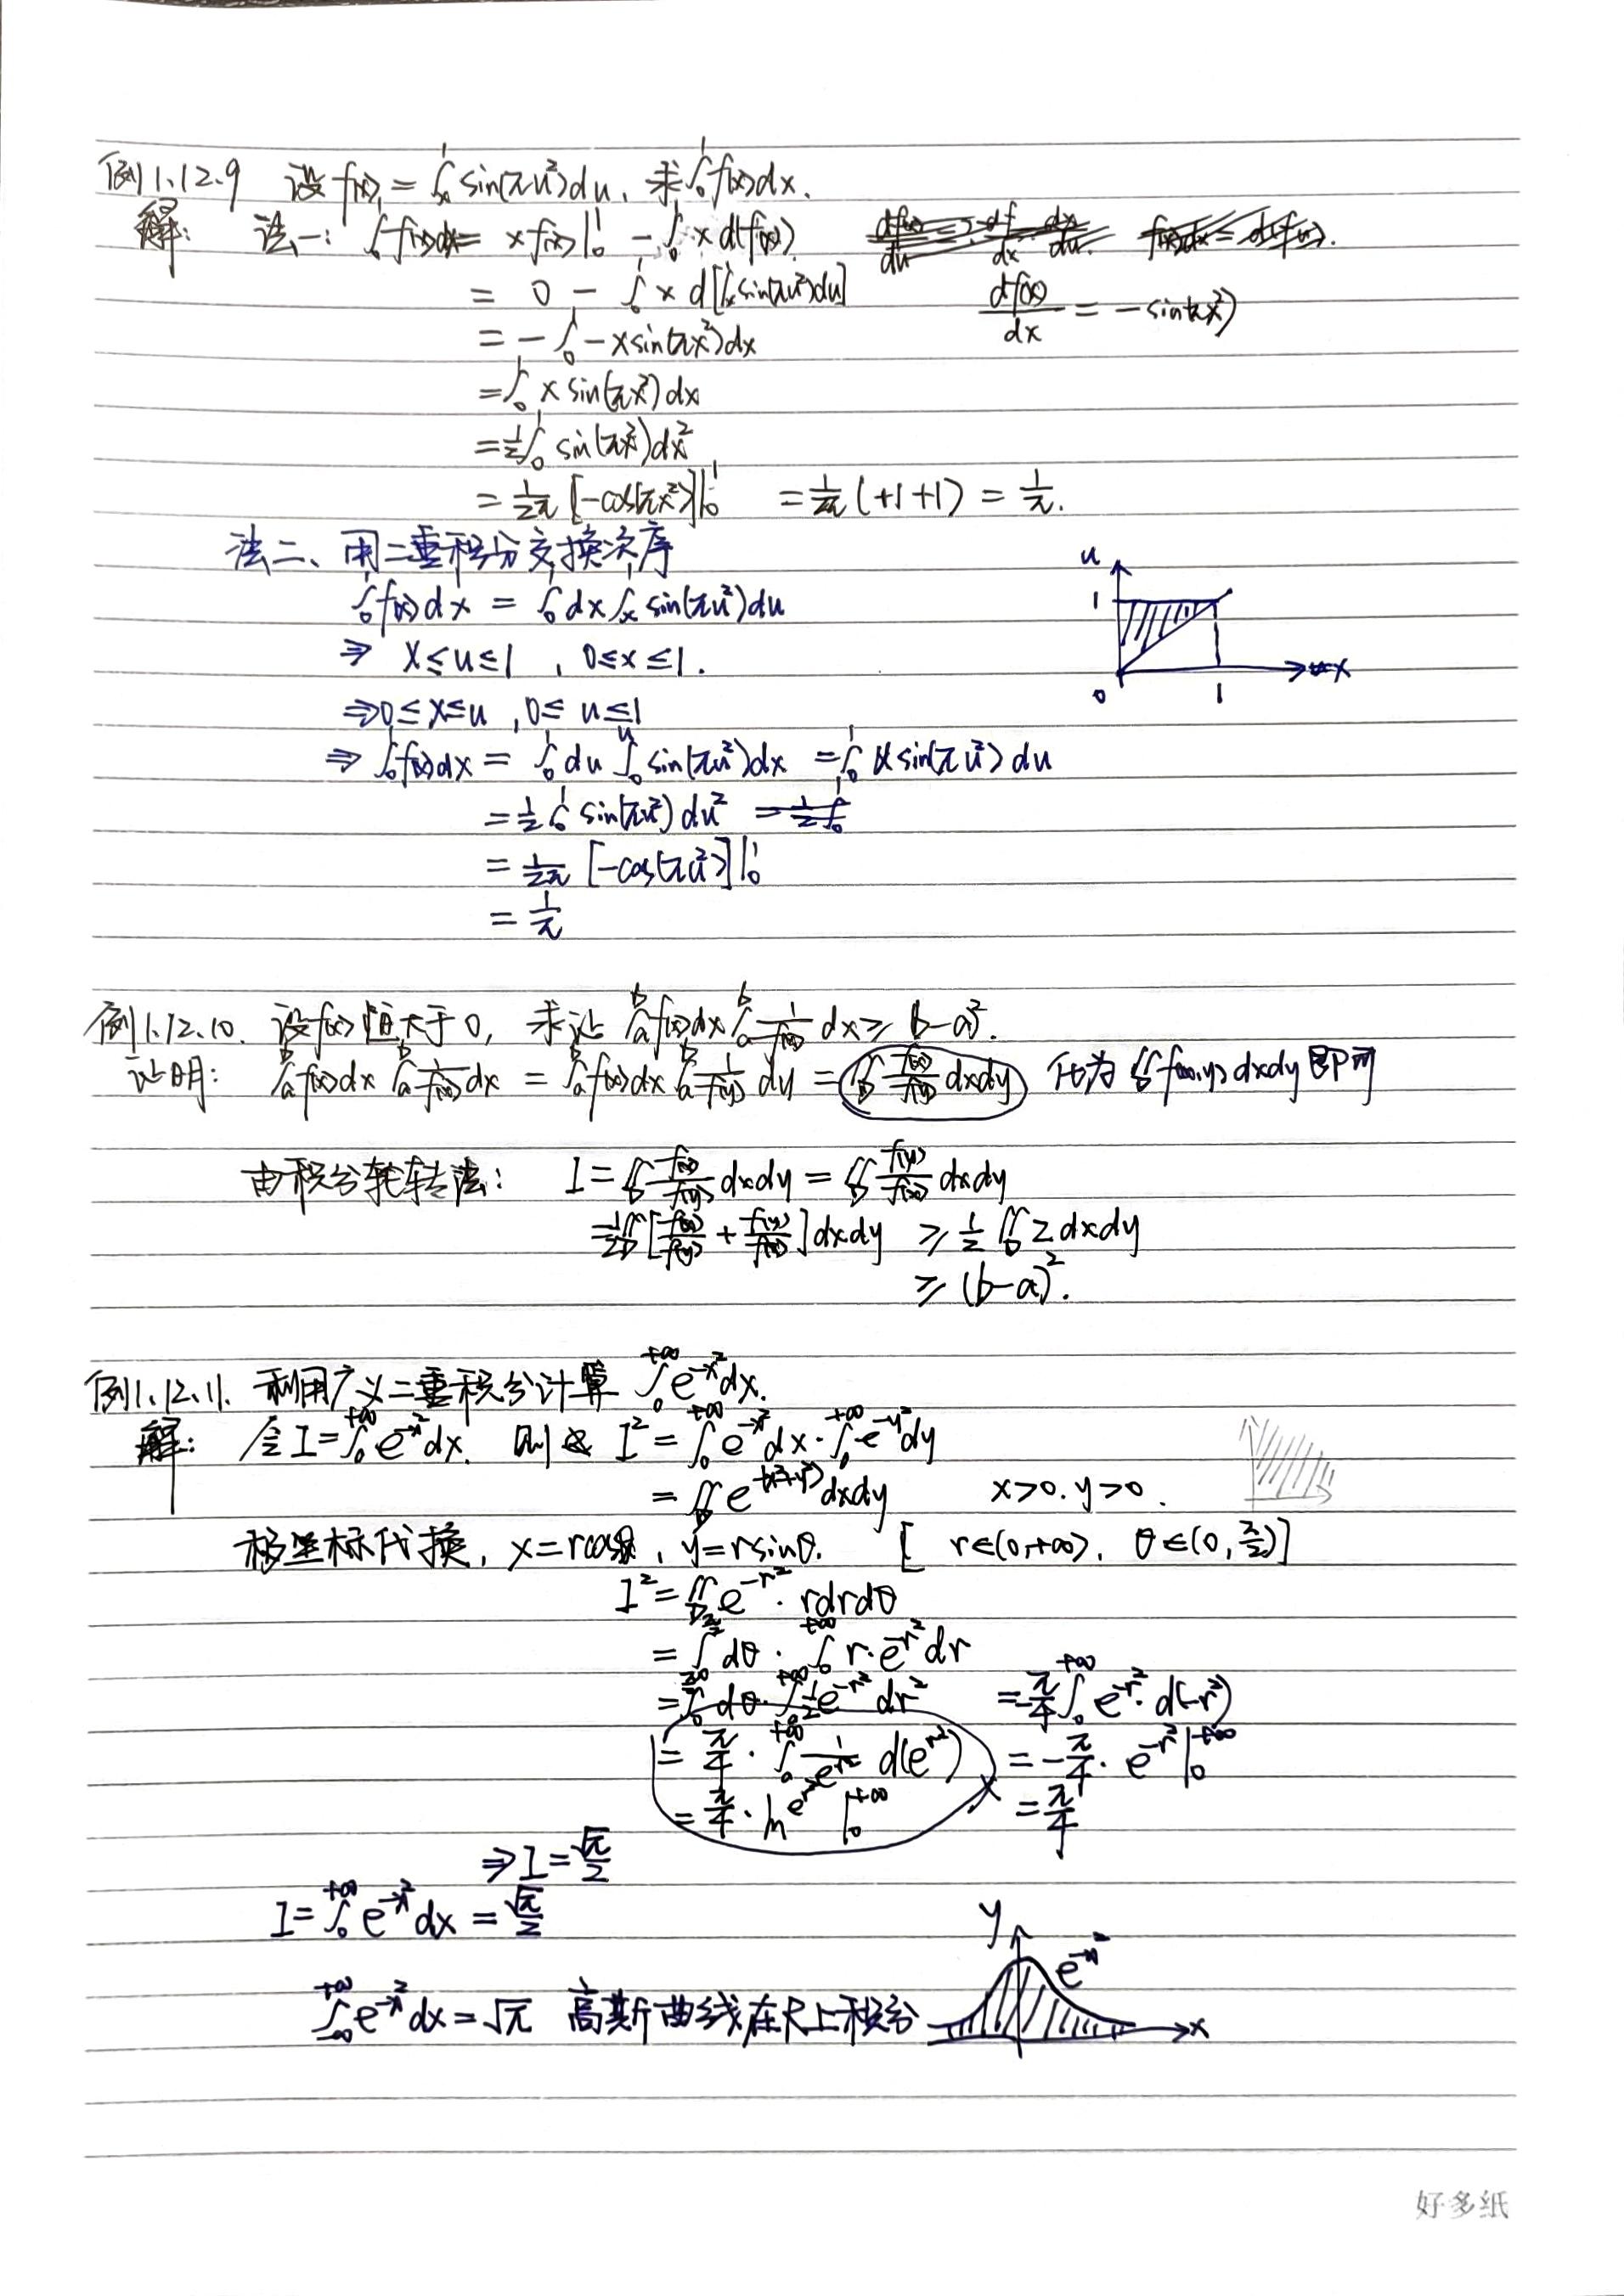 例1.12.9 设f(x)=∫₀¹ₓ sin(πu²)du, 求∫₀¹f(x)dx.
解: 法一: ∫₀¹f(x)dx = xf(x)|₀¹ - ∫₀¹ x d(f(x))
= 0 - ∫₀¹ x d[∫ₓ¹sin(πu²)du] df(x)/dx = -sin(πx²)
= -∫₀¹ -xsin(πx²)dx
= ∫₀¹ x sin(πx²)dx
= 1/2∫₀¹ sin(πx²)dx²
= 1/2π [-cos(πx²)]|₀¹ = 1/2π (+1+1) = 1/π.
法二、用二重积分交换次序
∫₀¹f(x)dx = ∫₀¹dx∫ₓ¹ sin(πu²)du
⇒ x≤u≤1, 0≤x≤1.
⇒ 0≤x≤u, 0≤u≤1
⇒ ∫₀¹f(x)dx = ∫₀¹du∫₀ᵘ sin(πu²)dx = ∫₀¹ u sin(πu²)du
= 1/2∫₀¹ sin(πu²)du²
= 1/2π [-cos(πu²)]|₀¹
= 1/π
u
1
0 1 x
例1.12.10. 设f(x)恒大于0, 求证 ∫ₐᵇf(x)dx∫ₐᵇ 1/f(x) dx ≥ (b-a)².
证明: ∫ₐᵇf(x)dx∫ₐᵇ 1/f(x) dx = ∫ₐᵇf(x)dx∫ₐᵇ 1/f(y) dy = ∬_D f(x)/f(y) dxdy 化为∬_D f(x,y)dxdy即可
由积分轮转法: I = ∬_D f(x)/f(y) dxdy = ∬_D f(y)/f(x) dxdy
= 1/2∬_D [f(x)/f(y) + f(y)/f(x)]dxdy ≥ 1/2∬_D 2dxdy
≥ (b-a)².
例1.12.11. 利用广义二重积分计算 ∫₀^{+∞} e^{-x²}dx.
解: 令I=∫₀^{+∞} e^{-x²}dx. 则 I² = ∫₀^{+∞} e^{-x²}dx·∫₀^{+∞} e^{-y²}dy
= ∬_D e^{-(x²+y²)}dxdy x>0, y>0.
极坐标代换, x=rcosθ, y=rsinθ. [r∈(0,+∞), θ∈(0,π/2)]
I² = ∬_D e^{-r²}·rdrdθ
= ∫₀^{π/2}dθ·∫₀^{+∞} r·e^{-r²}dr
= ∫₀^{π/2}dθ·∫₀^{+∞} 1/2 e^{-r²}dr² = -π/4∫₀^{+∞} e^{-r²}·d(-r²)
= π/4·∫₀^{+∞} 1/e^{r²} d(e^{r²}) × = -π/4·e^{-r²}|₀^{+∞}
= π/4·ln e^{r²}|₀^{+∞} = π/4
⇒ I = √π/2
I = ∫₀^{+∞} e^{-x²}dx = √π/2
∫_{-∞}^{+∞} e^{-x²}dx = √π 高斯曲线在R上积分
y
e^{-x²}
x
好多纸